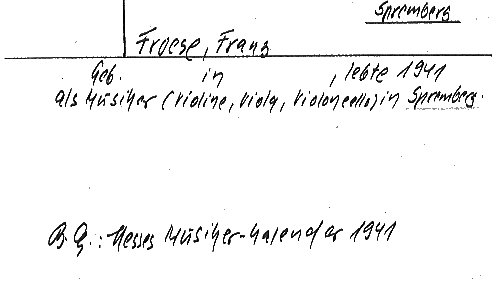 Spremberg
Froese, Franz
Geb. in , lebte 1941
als Musiker (Violine, Viola, Violoncello) in Spremberg.
B.Q.: Hesses Musiker-Kalender 1941